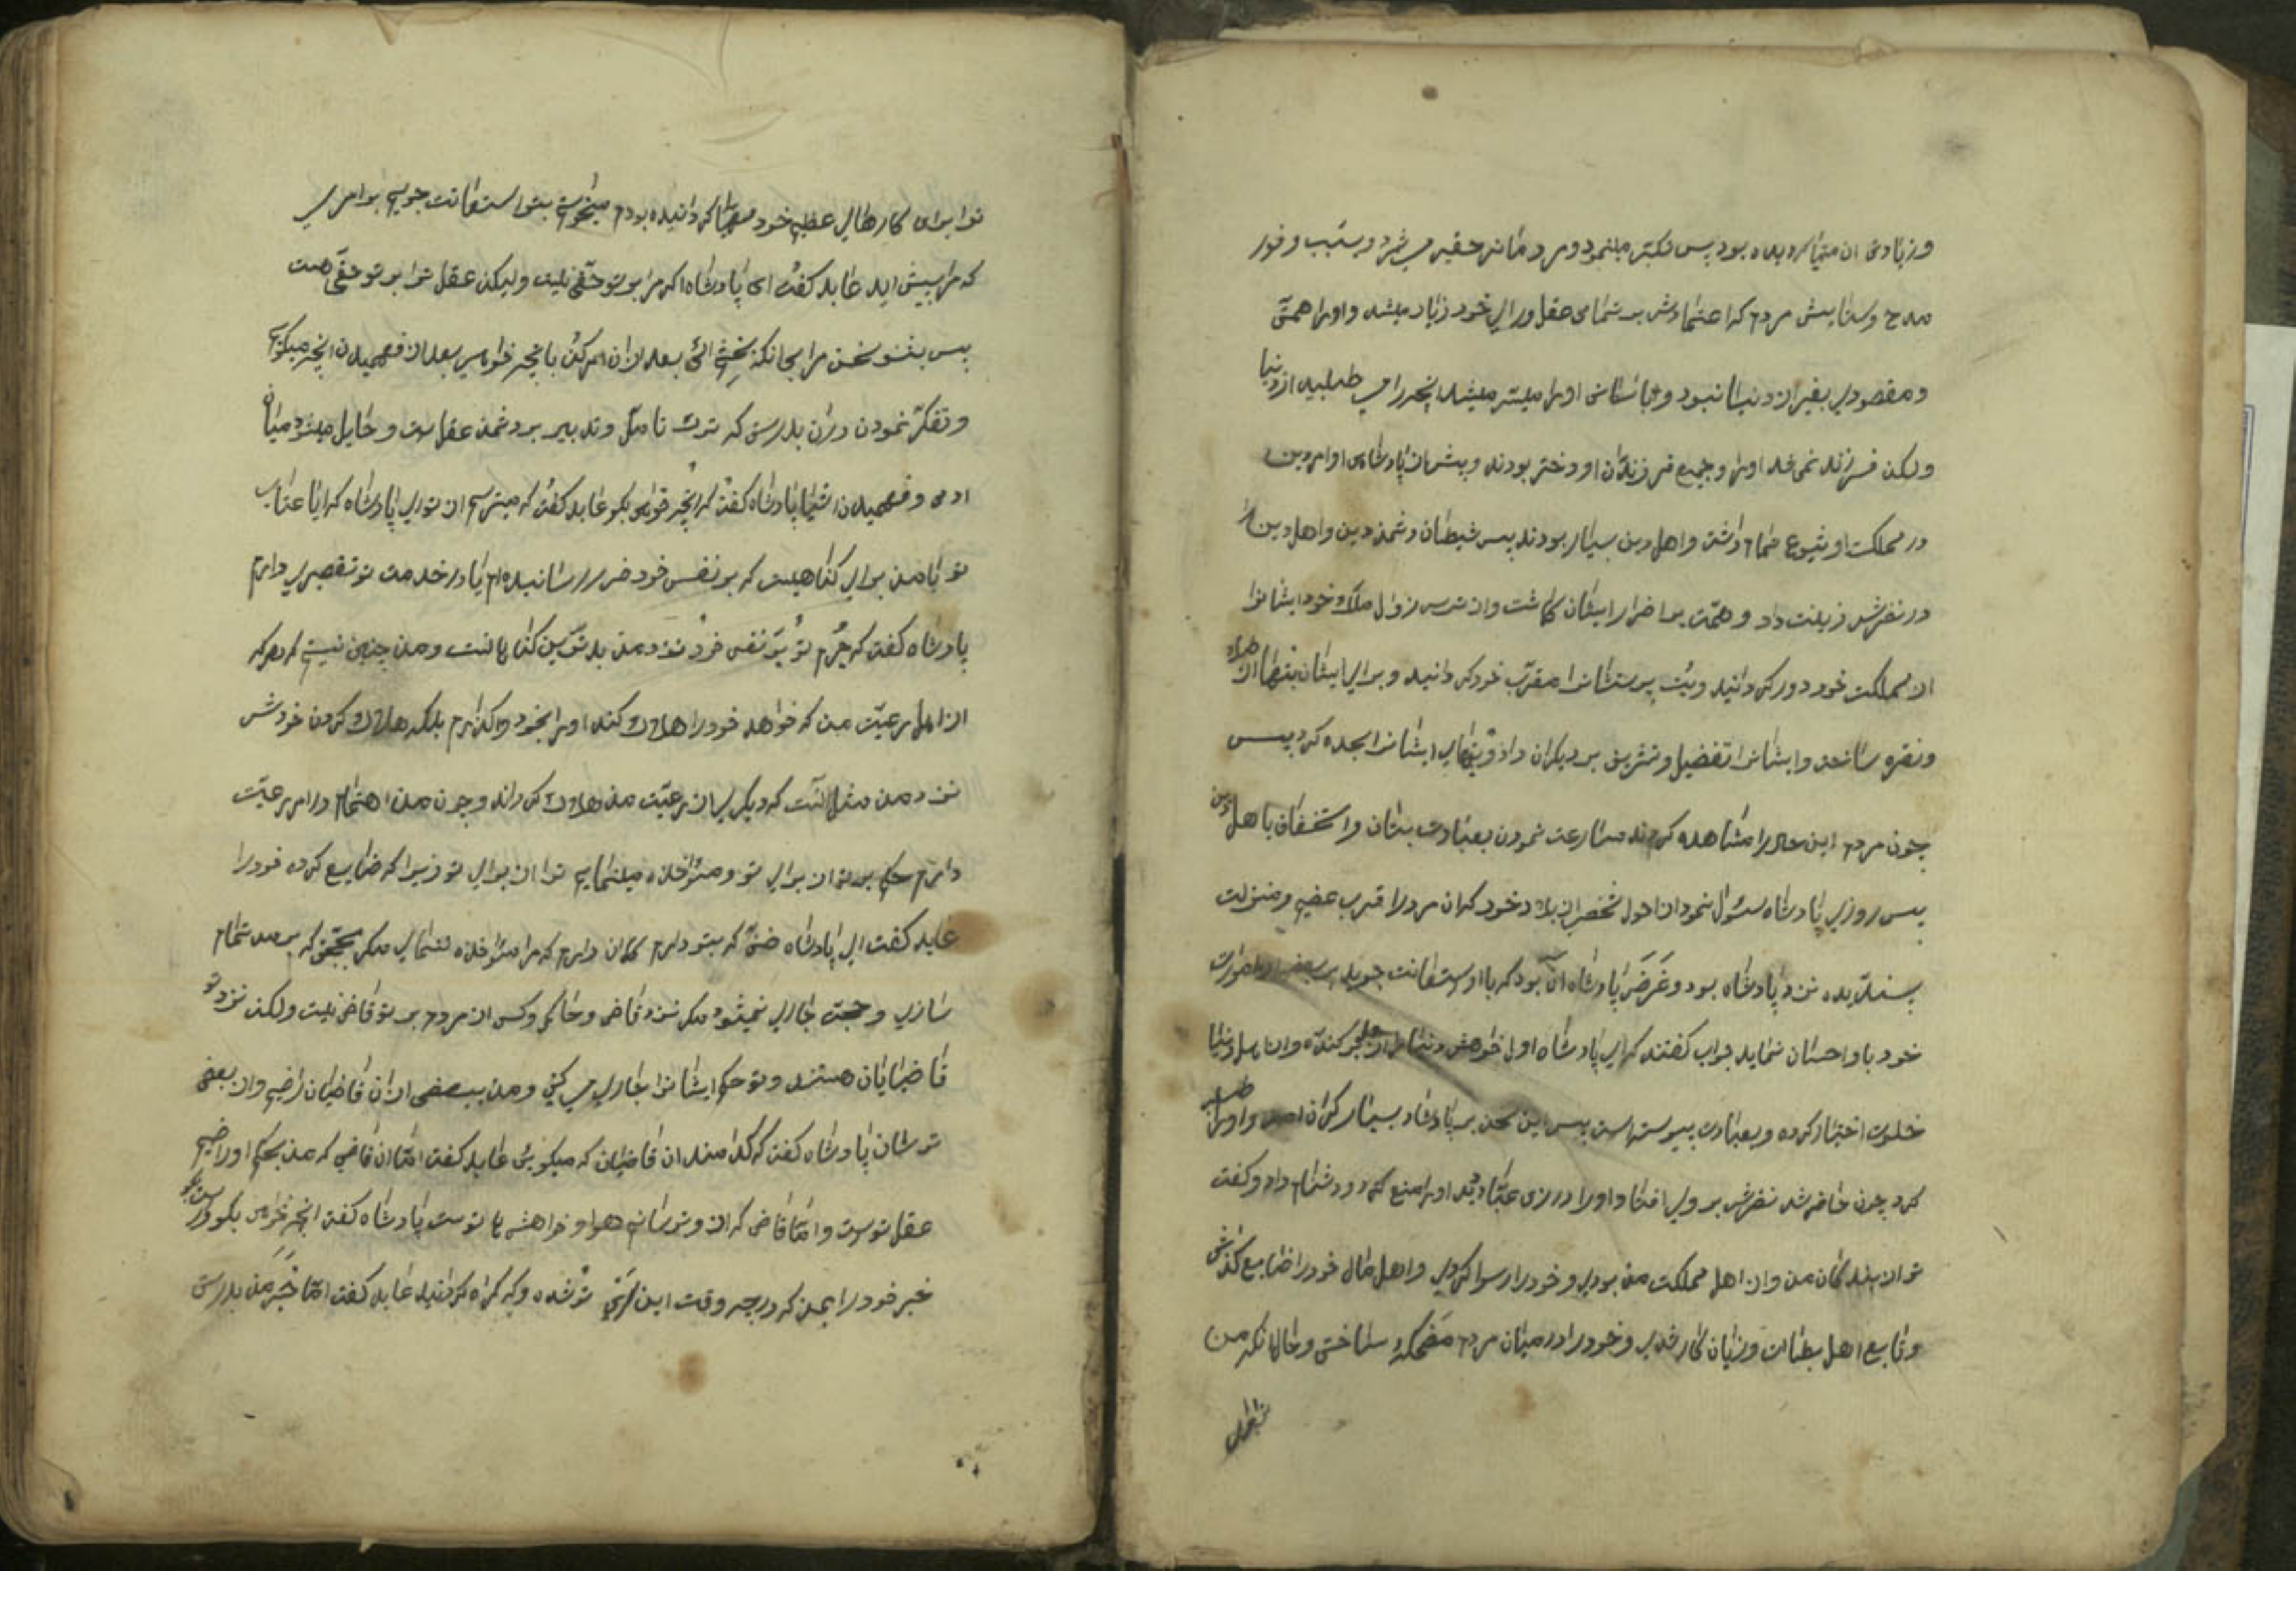 و زیادتی آن مهیا گردیده بود پس تکبر مینمود و مردمانرا حقیر می شمرد و بسبب وفور
مدح و ستایش مردم که اعتمادش بر تمامی عقل و رای خود زیاد میشد و اورا همتی
و مقصودی بغیر از دنیا نبود و بآسانی اورا میسر میشد آنچه را می طلبید از دنیا
ولکن فرزند نمی شد اورا و جمیع فرزندان او دختر بودند و پیش از پادشاهی او امر دین
در مملکت او شیوع تمام داشت و اهل دین بسیار بودند پس شیطان دشمنی دین و اهل دین را
در نظرش زینت داد و همت بر اضرار ایشان گماشت و از ترس زوال ملک خود ایشانرا
از مملکت خود دور گردانید و بت پرستانرا مقرب خود گردانید و برای ایشان بتها از طلا
و نقره ساختند و ایشانرا تفضیل و تشریف بر دیگران داد و بتهای ایشانرا سجده کرد پس
چون مردم این حال را مشاهده کردند مسارعت نمودن بعبادت بتان و استخفاف با هل دین
پس روزی پادشاه سئوال نمود از احول شخصی از بلاد خود که آن مرد را قرب عظیم و منزلت
پسندیده نزد پادشاه بود و غرض پادشاه آن بود که با او استعانت جوید بر بعضی از امورات
خود باو احسان نماید جواب گفتند که ای پادشاه او خواهش دنیا از خود کنده و از اهل دنیا
خلوت اختیار کرده و بعبادت پیوسته است پس این سخن بر پادشاه بسیار گران آمد و اورا طلب
کرد چون حاضر شد نظرش بر وی افتاد او را در زی عباد دید اورا منع کرد و دشنام داد و گفت
تو از بندگان من و از اهل مملکت من بودی و خود را رسوا کردی و اهل مال خود را ضایع گذاشتی
و تابع اهل بطالت و زیان کار شدی و خود را در میان مردم مضحکه ساختی و حال آنکه من
ترا برای
ترا برای کارهای عظیم خود مهیا گردانیده بودم میخواستم بتو استعانت جویم بر امری
که مرا پیش آید عابد گفت ای پادشاه اگر مرا بر تو حقی نیست ولیکن عقل ترا بر تو حقی هست
پس بشنو سخن مرا بی آنکه بخشم آئی بعد از آن امر کن بآنچه خواهی بعد از فهمیدن آنچه میگویم
و تفکر نمودن در آن بدرستی که ترک تامل و تدبیر بر دشمن عقل است و حایل میشود میان
آدمی و فهمیدن اشیا پادشاه گفت که آنچه خواهی بگو عابد گفت که میپرسم از تو ای پادشاه که آیا عتاب
تو با من برای گناهیست که بر نفس خود ضرر رسانیده ام یا در خدمت تو تقصیری دارم
پادشاه گفت که جرم تو بر نفس خود نزد من بدترین گناهانست و من چنین نیستم که هر که
از اهل رعیت من که خواهد خود را هلاک کند اورا بخود واگذارم بلکه هلاک کردن خودش
نزد من مثل آنست که دیگری از رعیت من هلاک گرداند و چون من اهتمام در امر رعیت
دارم حکم بر تو از برای تو و مؤاخذه مینمایم ترا از برای تو زیرا که ضایع کرده خود را
عابد گفت ای پادشاه ظنی که بتو دارم گمان دارم که مرا مئواخذه ننمائی مگر بحجتی که بر من تمام
سازی و حجت جاری نمیشود مگر نزد قاضی و حاکمی و کسی از مردم بر تو قاضی نیست ولکن نزد تو
قاضیان هستند و تو حکم ایشانرا جاری می کنی و من ببعضی از آن قاضیان راضیم و از بعضی
ترسان پادشاه گفت که کدامند آن قاضیان که میگویی عابد گفت اما آن قاضی که من بحکم او راضیم
عقل توست و اما قاضی که از و ترسانم هوا و خواهشهای توست پادشاه گفت آنچه خواهی بگو و راست بگو
خبر خود را بمن که در چه وقت این رای ترا شده و که گمراه گردانید عابد گفت اما خبر من بدرستی